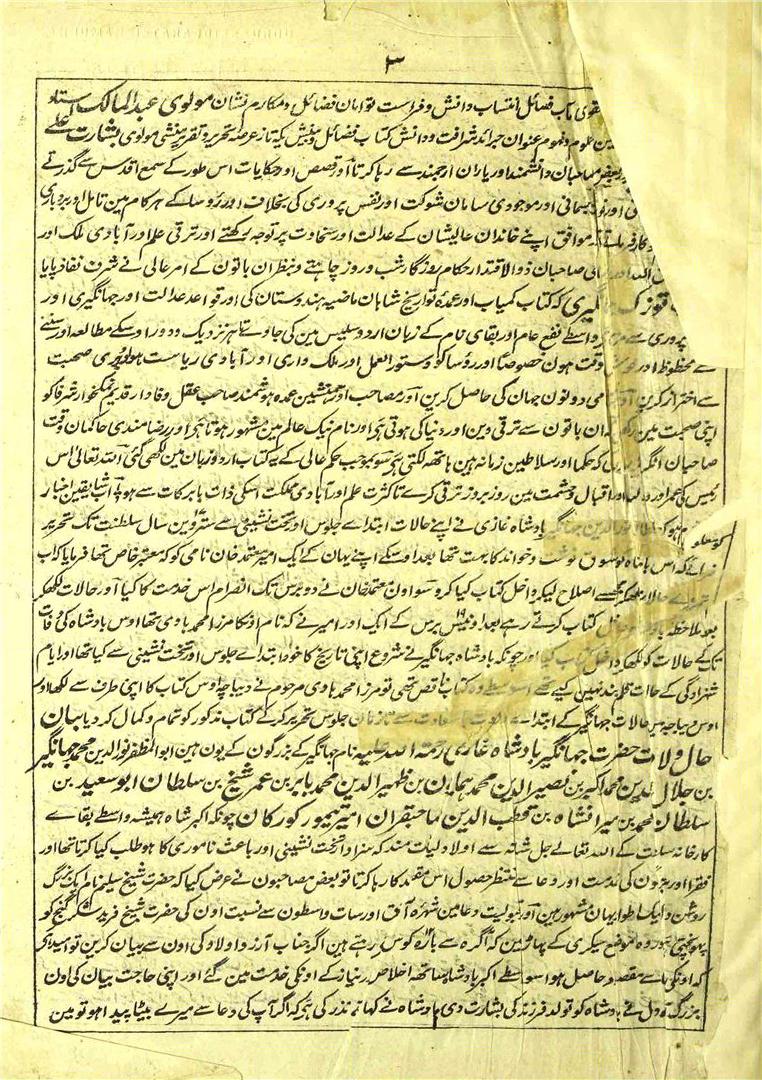 ۳
تقوی مآب فضائل انتساب دانش و فراست توامان فضائل و مکارم نشان مولوی عبد المالک استاد
علوم و فہوم عنوان جرائد شرافت و دانش کتاب فضائل و بینش یکہ تاز عرصہ تحریر و تقریر منشی مولوی بشارت علی
بعض مصاحبان دانشمند اور یاران ارجمند سے رہا کرتا اور قصص اور حکایات اس طور کے سمع اقدس سے گذرتے
اور موجودی سامان شوکت اور نفس پروری کی بخلاف اور رؤسا کے ہر کام مین تامل اور بردباری
کار فرماتے موافق اپنے خاندان عالیشان کے عدالت اور سخاوت پر توجہ رکھتے اور ترقی علم اور آبادی ملک اور
صاحبان ذو الاقتدار حکام روزگار شب و روز چاہتے بنظر ان باتون کے امر عالی نے شرف نفاذ پایا
توزک جہانگیری کہ کتاب کمیاب اور عمدہ تواریخ شاہان ماضیہ ہندوستان کی اور قواعد عدالت اور جہانگیری اور
پروری سے واسطے نفع عام اور بقای نام کے زبان اردو سلیس مین کی جاوے تا ہر نزدیک و دور اوسکے مطالعہ اور سننے
سے محظوظ اور وقت ہون خصوصاً اور رؤسا کو دستور العمل اور ملک داری اور آبادی ریاست ہو بری صحبت
سے احتراز کرین دونون جہان کی حاصل کرین اور مصاحب اور ہمنشین عمدہ ہوشمند صاحب عقل وفادار قدیم نمکخوار شرفا کو
اپنی صحبت مین رکھین ان باتون سے ترقی دین اور دنیا کی ہوتی ہی اور نام نیک عالم مین مشہور ہوتا ہی اور رضامندی حاکمان وقت
صاحبان انگریز کہ حکما اور سلاطین زمانہ ہین ہاتھ لگتی ہی سو بموجب حکم عالی کے یہ کتاب اردو زبان مین لکھی گئی اللہ تعالی اس
رئیس کی عمر اور دولت اور اقبال و حشمت مین روز بروز ترقی کرے تا کثرت علم اور آبادی مملکت اسکی ذات بابرکات سے ہو اب شایقین اخبار
کو معلوم ہو کہ نور الدین جہانگیر بادشاہ غازی نے اپنے حالات ابتداے جلوس اور تخت نشینی سے سترہوین سال سلطنت تک تحریر
فرمائے کہ اس بادشاہ کو شوق نوشت و خواند کا بہت تھا بعد اوسکے اپنے یہان کے ایک امیر معتمد خان نامی کو کہ معتبر خاص تھا فرمایا کہ اب
حالات لکھکر مجھسے اصلاح لیکر داخل کتاب کیا کرو سو اون معتمد خان نے دو برس تک انصرام اس خدمت کا کیا اور حالات لکھکر
بعد ملاحظہ بادشاہ داخل کتاب کرتے رہے بعد اونیس ۱۹ برس کے ایک اور امیر نے کہ نام اونکا مرزا محمد ہادی تھا اوس بادشاہ کی وفات
تک کے حالات کو لکھکر داخل کتاب کیا اور چونکہ بادشاہ جہانگیر نے شروع اپنی تاریخ کا خود ابتداے جلوس اور تخت نشینی سے کیا تھا اور ایام
شہزادگی کے حالات قلمبند نہین کیے تھے اسواسطے وہ کتاب ناقص تھی تو مرزا محمد ہادی مرحوم نے دیباچہ اوس کتاب کا اپنی طرف سے لکھا اور
اوس دیباچہ مین حالات جہانگیر کے ابتداے ولادت با سعادت سے تا زمان جلوس تحریر کرکے کتاب مذکور کو تمام و کمال کر دیا بیان
حال ولادت حضرت جہانگیر بادشاہ غازی رحمۃ اللہ علیہ نام جہانگیر کے بزرگون کے یون ہین ابو المظفر نور الدین محمد جہانگیر
بن جلال الدین محمد اکبر بن نصیر الدین محمد ہمایون بن ظہیر الدین محمد بابر بن عمر شیخ بن سلطان ابو سعید بن
سلطان محمد بن میرانشاہ بن قطب الدین صاحبقران امیر تیمور گورکان چونکہ اکبر شاہ ہمیشہ واسطے بقاے
کارخانہ سلطنت کے اللہ تعالے جل شانہ سے اولاد لیاقتمند کہ سزاوار تخت نشینی اور باعث ناموری کا ہو طلب کیا کرتا تھا اور
فقرا اور بزرگون کی خدمت اور دعا سے منتظر حصول اس مقصد کا رہا کرتا تو بعض مصاحبون نے عرض کیا کہ حضرت شیخ سلیم نام ایک بزرگ
روشن دل یہان مشہور ہین اور قبولیت دعا مین شہرۂ آفاق اور سات واسطون سے نسبت اون کی حضرت شیخ فرید شکر گنج کو
پہونچتی ہی اور وہ موضع سیکری کے پہاڑ مین کہ آگرہ سے بارہ کوس رہتے ہین اگر جناب آرزوے اولاد کی اون سے بیان کرین تو امید ہی کہ
کہ اونکی دعا سے مقصود حاصل ہو اسواسطے اکبر بادشاہ ساتھ اخلاص و نیاز کے اونکی خدمت مین گئے اور اپنی حاجت بیان کی اون
بزرگ نے بادشاہ کو تولد فرزند کی بشارت دی بادشاہ نے کہا مینے نذر کی ہی کہ اگر آپ کی دعا سے میرے بیٹا پیدا ہو تو مین